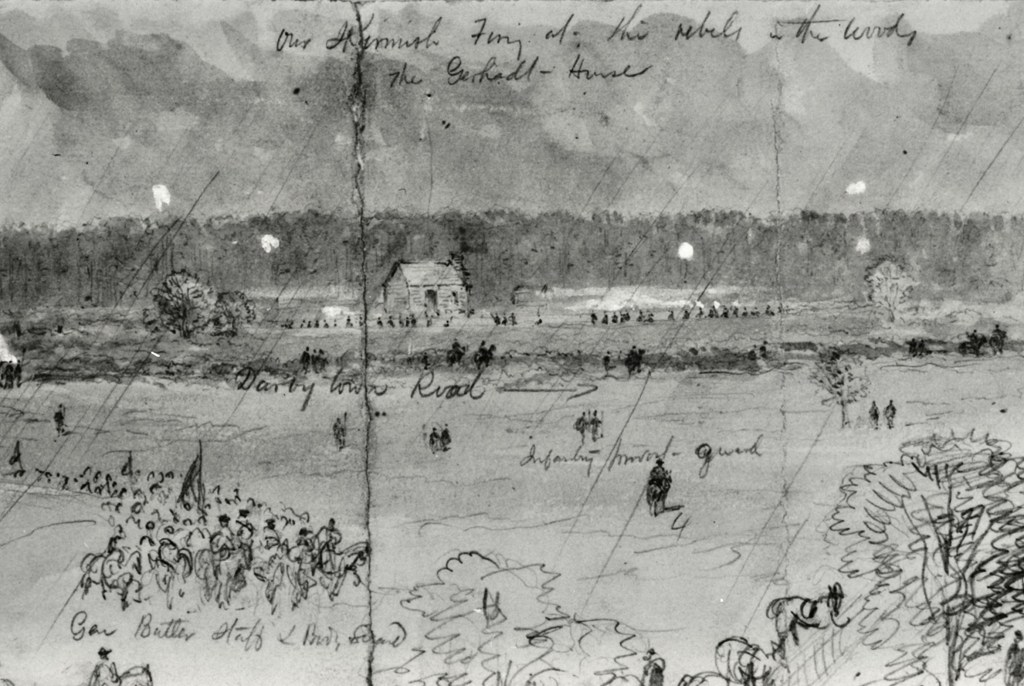 Our Skirmish Firing at the rebels in the woods
The Gerhadt - House
Darby town Road
Infantry provost - guard
4
Gen Butler Staff & Body Guard